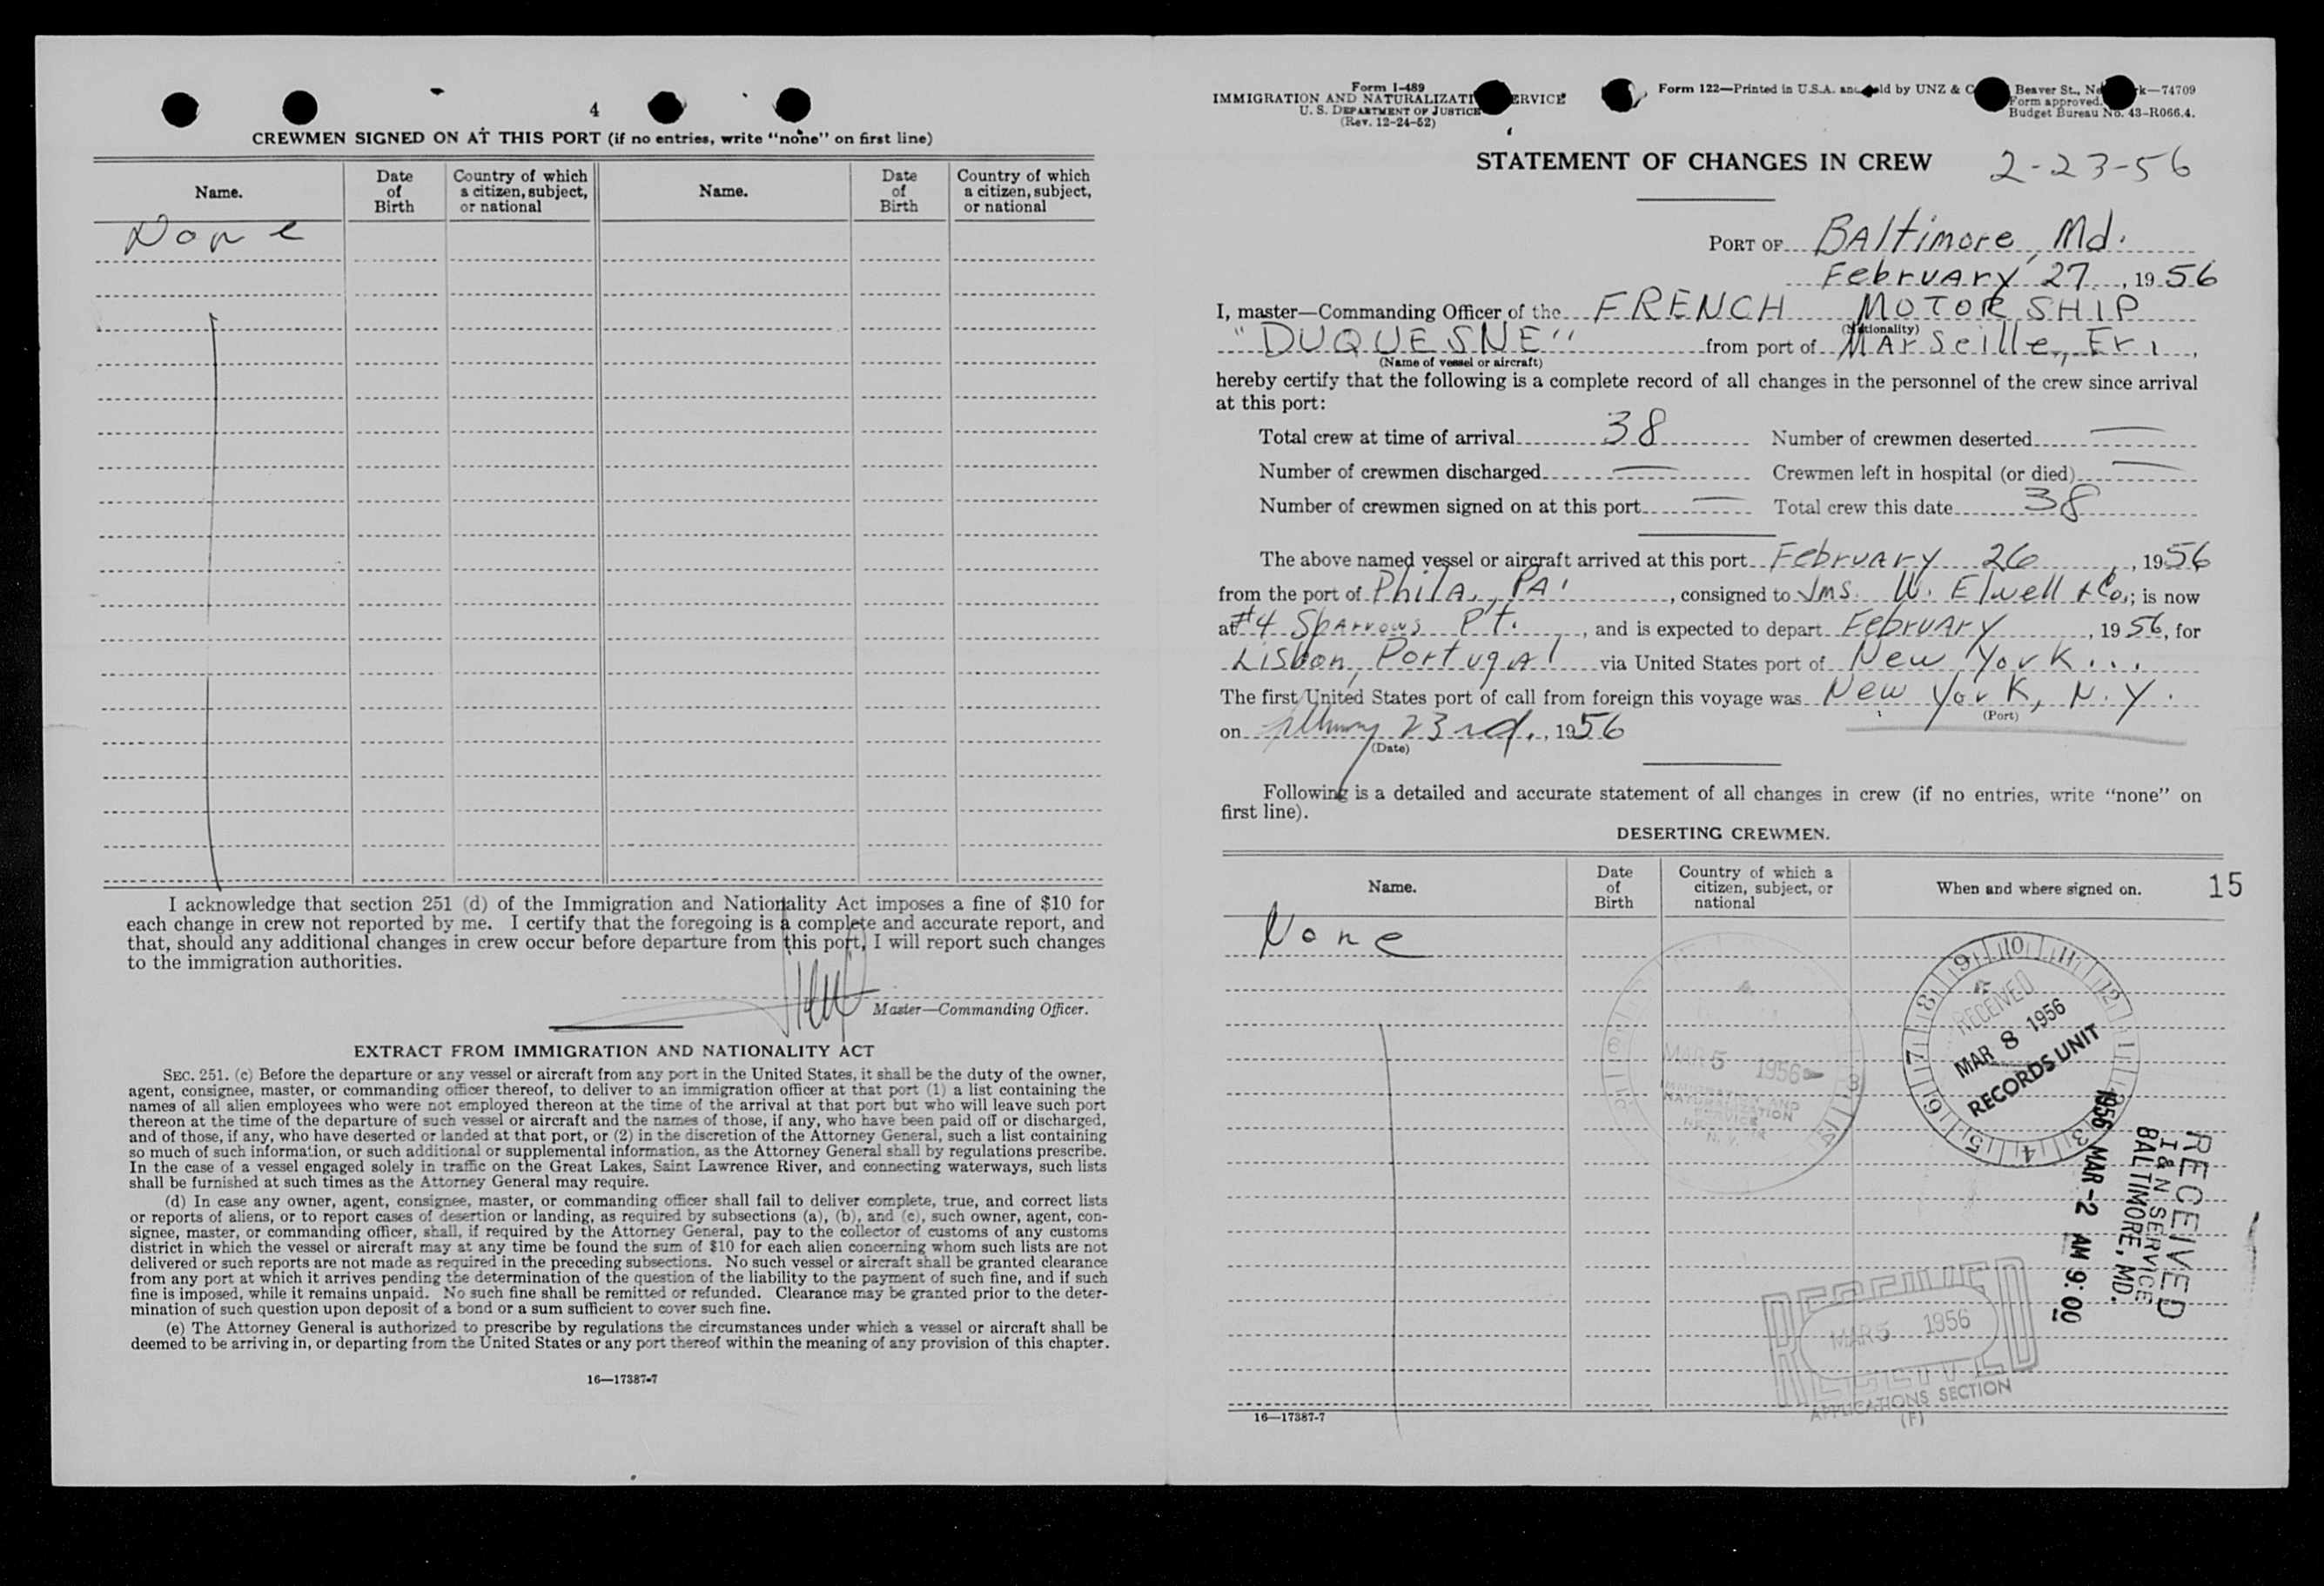 4
CREWMEN SIGNED ON AT THIS PORT (if no entries, write "none" on first line)
Name. Date of Birth Country of which a citizen, subject, or national Name. Date of Birth Country of which a citizen, subject, or national
None
I acknowledge that section 251 (d) of the Immigration and Nationality Act imposes a fine of $10 for
each change in crew not reported by me. I certify that the foregoing is a complete and accurate report, and
that, should any additional changes in crew occur before departure from this port, I will report such changes
to the immigration authorities.
Master—Commanding Officer.
EXTRACT FROM IMMIGRATION AND NATIONALITY ACT
SEC. 251. (c) Before the departure or any vessel or aircraft from any port in the United States, it shall be the duty of the owner,
agent, consignee, master, or commanding officer thereof, to deliver to an immigration officer at that port (1) a list containing the
names of all alien employees who were not employed thereon at the time of the arrival at that port but who will leave such port
thereon at the time of the departure of such vessel or aircraft and the names of those, if any, who have been paid off or discharged,
and of those, if any, who have deserted or landed at that port, or (2) in the discretion of the Attorney General, such a list containing
so much of such information, or such additional or supplemental information, as the Attorney General shall by regulations prescribe.
In the case of a vessel engaged solely in traffic on the Great Lakes, Saint Lawrence River, and connecting waterways, such lists
shall be furnished at such times as the Attorney General may require.
(d) In case any owner, agent, consignee, master, or commanding officer shall fail to deliver complete, true, and correct lists
or reports of aliens, or to report cases of desertion or landing, as required by subsections (a), (b), and (c), such owner, agent, con-
signee, master, or commanding officer, shall, if required by the Attorney General, pay to the collector of customs of any customs
district in which the vessel or aircraft may at any time be found the sum of $10 for each alien concerning whom such lists are not
delivered or such reports are not made as required in the preceding subsections. No such vessel or aircraft shall be granted clearance
from any port at which it arrives pending the determination of the question of the liability to the payment of such fine, and if such
fine is imposed, while it remains unpaid. No such fine shall be remitted or refunded. Clearance may be granted prior to the deter-
mination of such question upon deposit of a bond or a sum sufficient to cover such fine.
(e) The Attorney General is authorized to prescribe by regulations the circumstances under which a vessel or aircraft shall be
deemed to be arriving in, or departing from the United States or any port thereof within the meaning of any provision of this chapter.
16—17387-7
Form I-489
IMMIGRATION AND NATURALIZATI ERVICE
U. S. DEPARTMENT OF JUSTICE
(Rev. 12-24-52)
Form 122—Printed in U.S.A. and sold by UNZ & C Beaver St., Ne k—74709
Form approved.
Budget Bureau No. 43-R066.4.
STATEMENT OF CHANGES IN CREW 2-23-56
PORT OF BAltimore, Md.
February 27, 1956
I, master—Commanding Officer of the FRENCH MOTOR SHIP
(Nationality)
"DUQUESNE" from port of MArseille, Fr.,
(Name of vessel or aircraft)
hereby certify that the following is a complete record of all changes in the personnel of the crew since arrival
at this port:
Total crew at time of arrival 38 Number of crewmen deserted —
Number of crewmen discharged — Crewmen left in hospital (or died) —
Number of crewmen signed on at this port — Total crew this date 38
The above named vessel or aircraft arrived at this port February 26, 1956
from the port of PhilA., PA., consigned to Jms. W. Elwell & Co.; is now
at #4 Sparrows Pt., and is expected to depart February, 1956, for
Lisbon, Portugal via United States port of New York...
The first United States port of call from foreign this voyage was New York, N.Y.
(Port)
on 23rd., 1956
(Date)
Following is a detailed and accurate statement of all changes in crew (if no entries, write "none" on
first line).
DESERTING CREWMEN.
Name. Date of Birth Country of which a citizen, subject, or national When and where signed on. 15
None
RECEIVED
MAR 8 1956
RECORDS UNIT
MAR 5 1956
IMMIGRATION AND
NATURALIZATION
SERVICE
N. Y.
RECEIVED
I & N SERVICE
BALTIMORE, MD.
1956 MAR -2 AM 9:00
RECEIVED
MAR 5 1956
RECEIVED
APPLICATIONS SECTION
(F)
16—17387-7